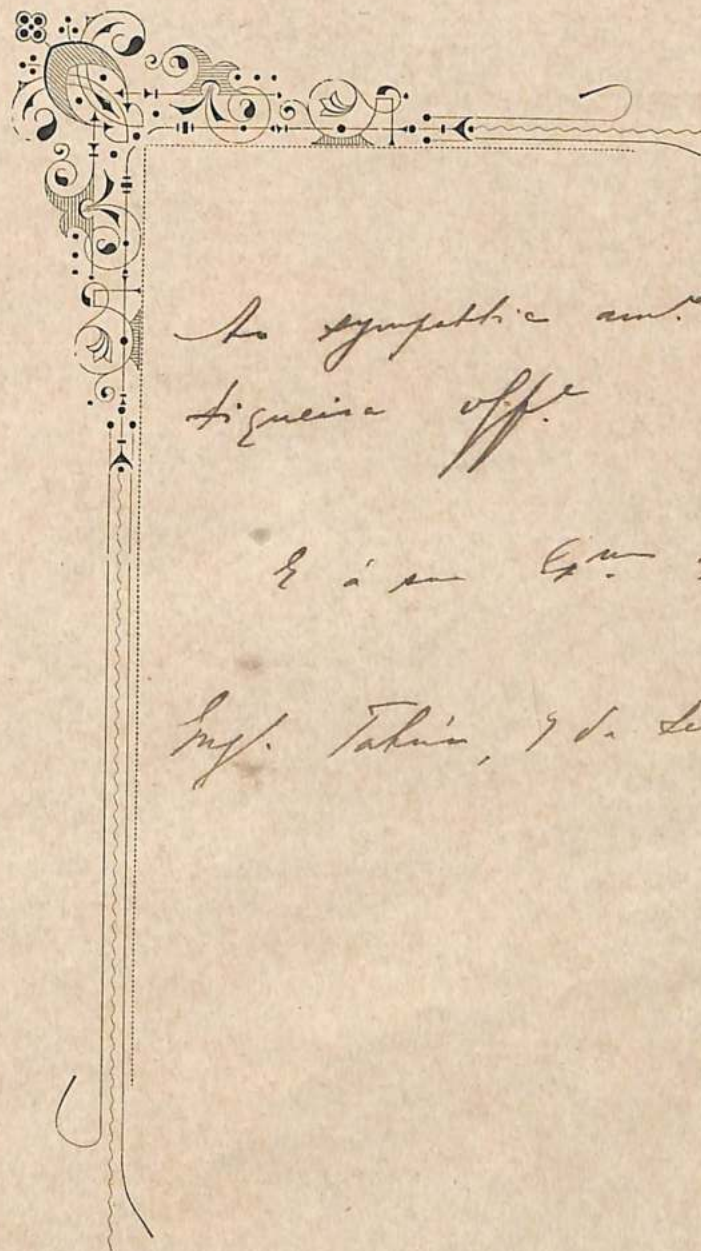 Ao sympathico am.º
Figueira off.e
E á sua Exma
Engº. Tahim, 9 de Se